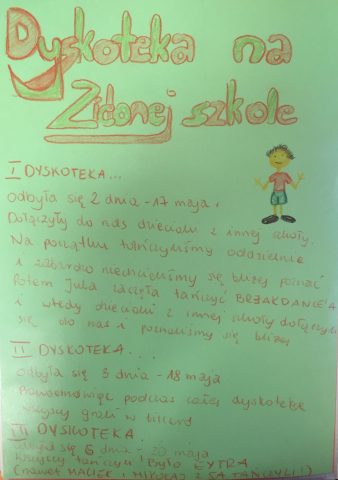 Dyskoteka na
Zielonej szkole
I DYSKOTEKA...
odbyła się 2 dnia - 17 maja.
Dołączyły do nas dzieciaki z innej szkoły.
Na początku tańczyliśmy oddzielnie
i zabardzo nie chcieliśmy się bliżej poznać
Potem Jula zaczęła tańczyć BREAKDANCE'A
i wtedy dzieciaki z innej szkoły dołączyli
się do nas i poznaliśmy się bliżej
II DYSKOTEKA...
odbyła się 3 dnia - 18 maja
Prawdomówiąc podczas całej dyskoteki
wszyscy grali w billard
III DYSKOTEKA.
odbyła się 6 dnia - 20 maja
Wszyscy tańczyli! Było EXTRA
(nawet MACIEK i MIKOŁAJ Z 5A TAŃCZYLI!)